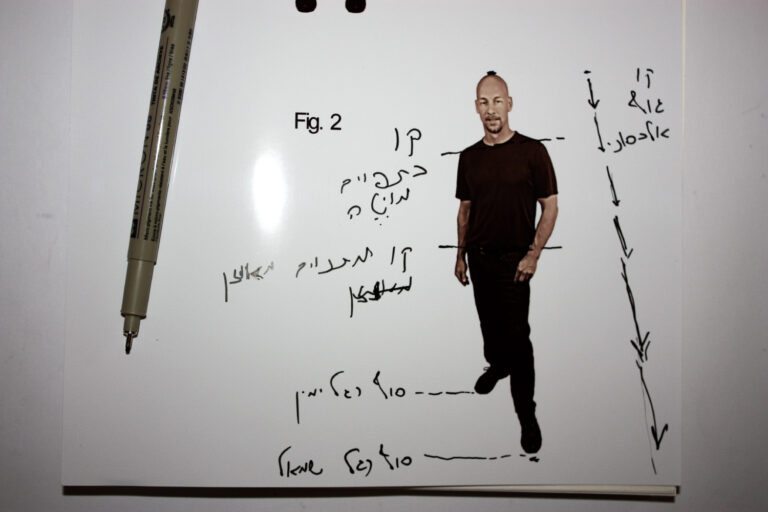 Fig. 2
קו
כתפיים
מוטה
קו מתניים מאוזן
סוף רגל ימין
סוף רגל שמאל
קו
גוף
אלכסוני
MICRON